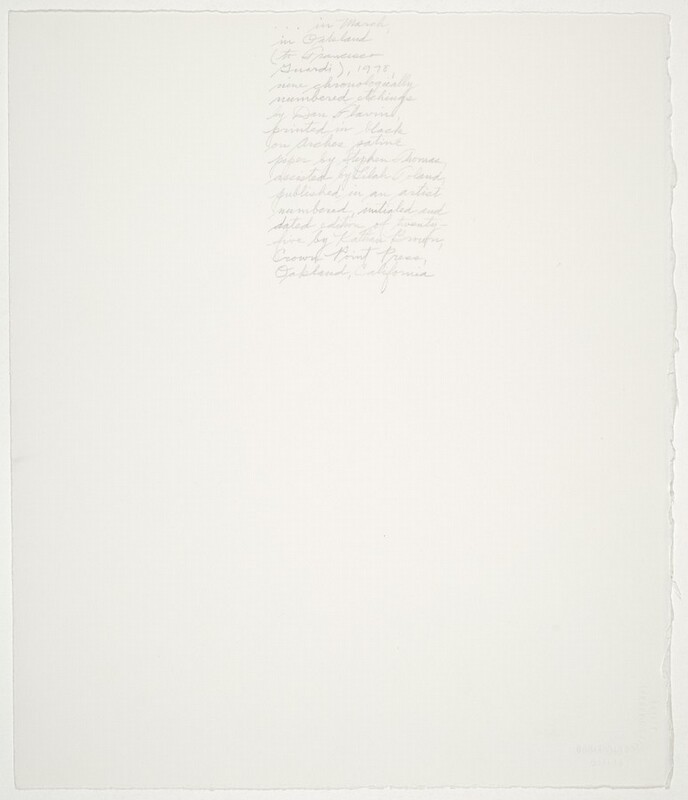 ... in March
in Oakland
(to Francesco
Guardi), 1978,
nine chronologically
numbered etchings
by Dan Flavin,
printed in black
on Arches satine
paper by Stephen Thomas
assisted by Lilah Toland
published in an artist
numbered, initialed and
dated edition of twenty-
five by Kathan Brown,
Crown Point Press,
Oakland, California